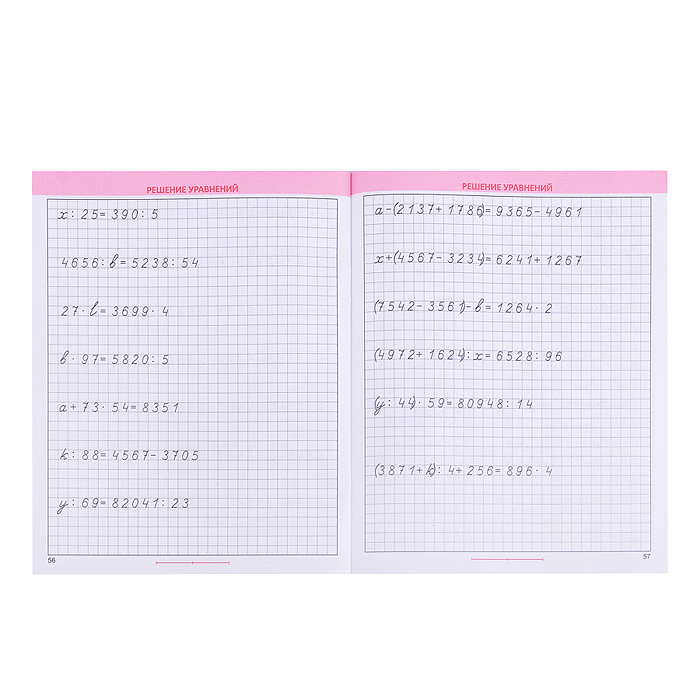 РЕШЕНИЕ УРАВНЕНИЙ
x : 25 = 390 : 5
4656 : в = 5238 : 54
27 · l = 3699 · 4
в · 97 = 5820 : 5
a + 73 · 54 = 8351
k : 88 = 4567 - 3705
y : 69 = 82041 : 23
56
РЕШЕНИЕ УРАВНЕНИЙ
a - (2137 + 1786) = 9365 - 4961
x + (4567 - 3234) = 6241 + 1267
(7542 - 3561) - в = 1264 · 2
(4972 + 1624) : x = 6528 : 96
(y : 44) · 59 = 80948 : 14
(3871 + k) : 4 + 256 = 896 · 4
57